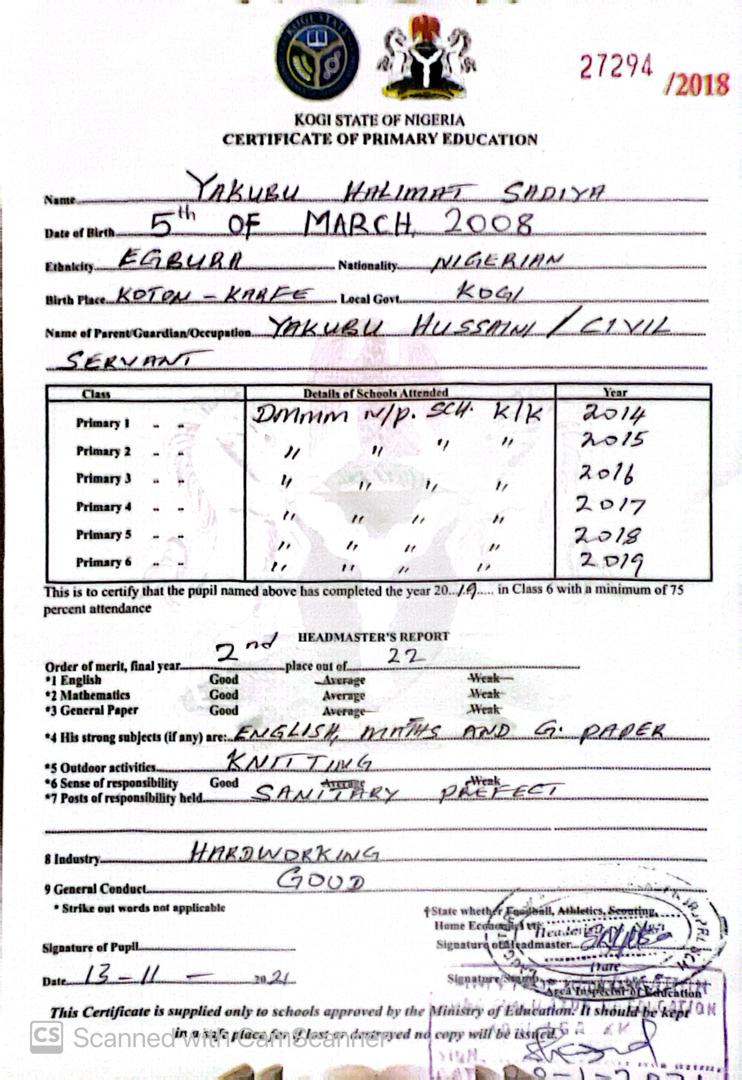 KOGI STATE
27294 /2018
KOGI STATE OF NIGERIA
CERTIFICATE OF PRIMARY EDUCATION
Name YAKUBU HALIMAT SADIYA
Date of Birth 5th OF MARCH, 2008
Ethnicity EGBURA Nationality NIGERIAN
Birth Place KOTON-KARFE Local Govt. KOGI
Name of Parent/Guardian/Occupation YAKUBU HUSSAINI / CIVIL
SERVANT
Class Details of Schools Attended Year
Primary 1 " " DMMM N/P. SCH. K/K 2014
Primary 2 " " " " " " 2015
Primary 3 " " " " " " 2016
Primary 4 " " " " " " 2017
Primary 5 " " " " " " 2018
Primary 6 " " " " " " 2019
This is to certify that the pupil named above has completed the year 20..19..... in Class 6 with a minimum of 75
percent attendance
HEADMASTER'S REPORT
Order of merit, final year 2nd place out of 22
*1 English Good Average Weak
*2 Mathematics Good Average Weak
*3 General Paper Good Average Weak
*4 His strong subjects (if any) are: ENGLISH, MATHS AND G. PAPER
*5 Outdoor activities KNITTING
*6 Sense of responsibility Good Average Weak
*7 Posts of responsibility held SANITARY PREFECT
8 Industry HARDWORKING
9 General Conduct GOOD
* Strike out words not applicable
†State whether Football, Athletics, Scouting,
Home Economics etc.
Signature of Pupil
Signature of Headmaster
Date 13-11- 2021
Signature/Stamp
Area Inspector of Education
This Certificate is supplied only to schools approved by the Ministry of Education. It should be kept
in a safe place for if lost or destroyed no copy will be issued.
CS Scanned with CamScanner